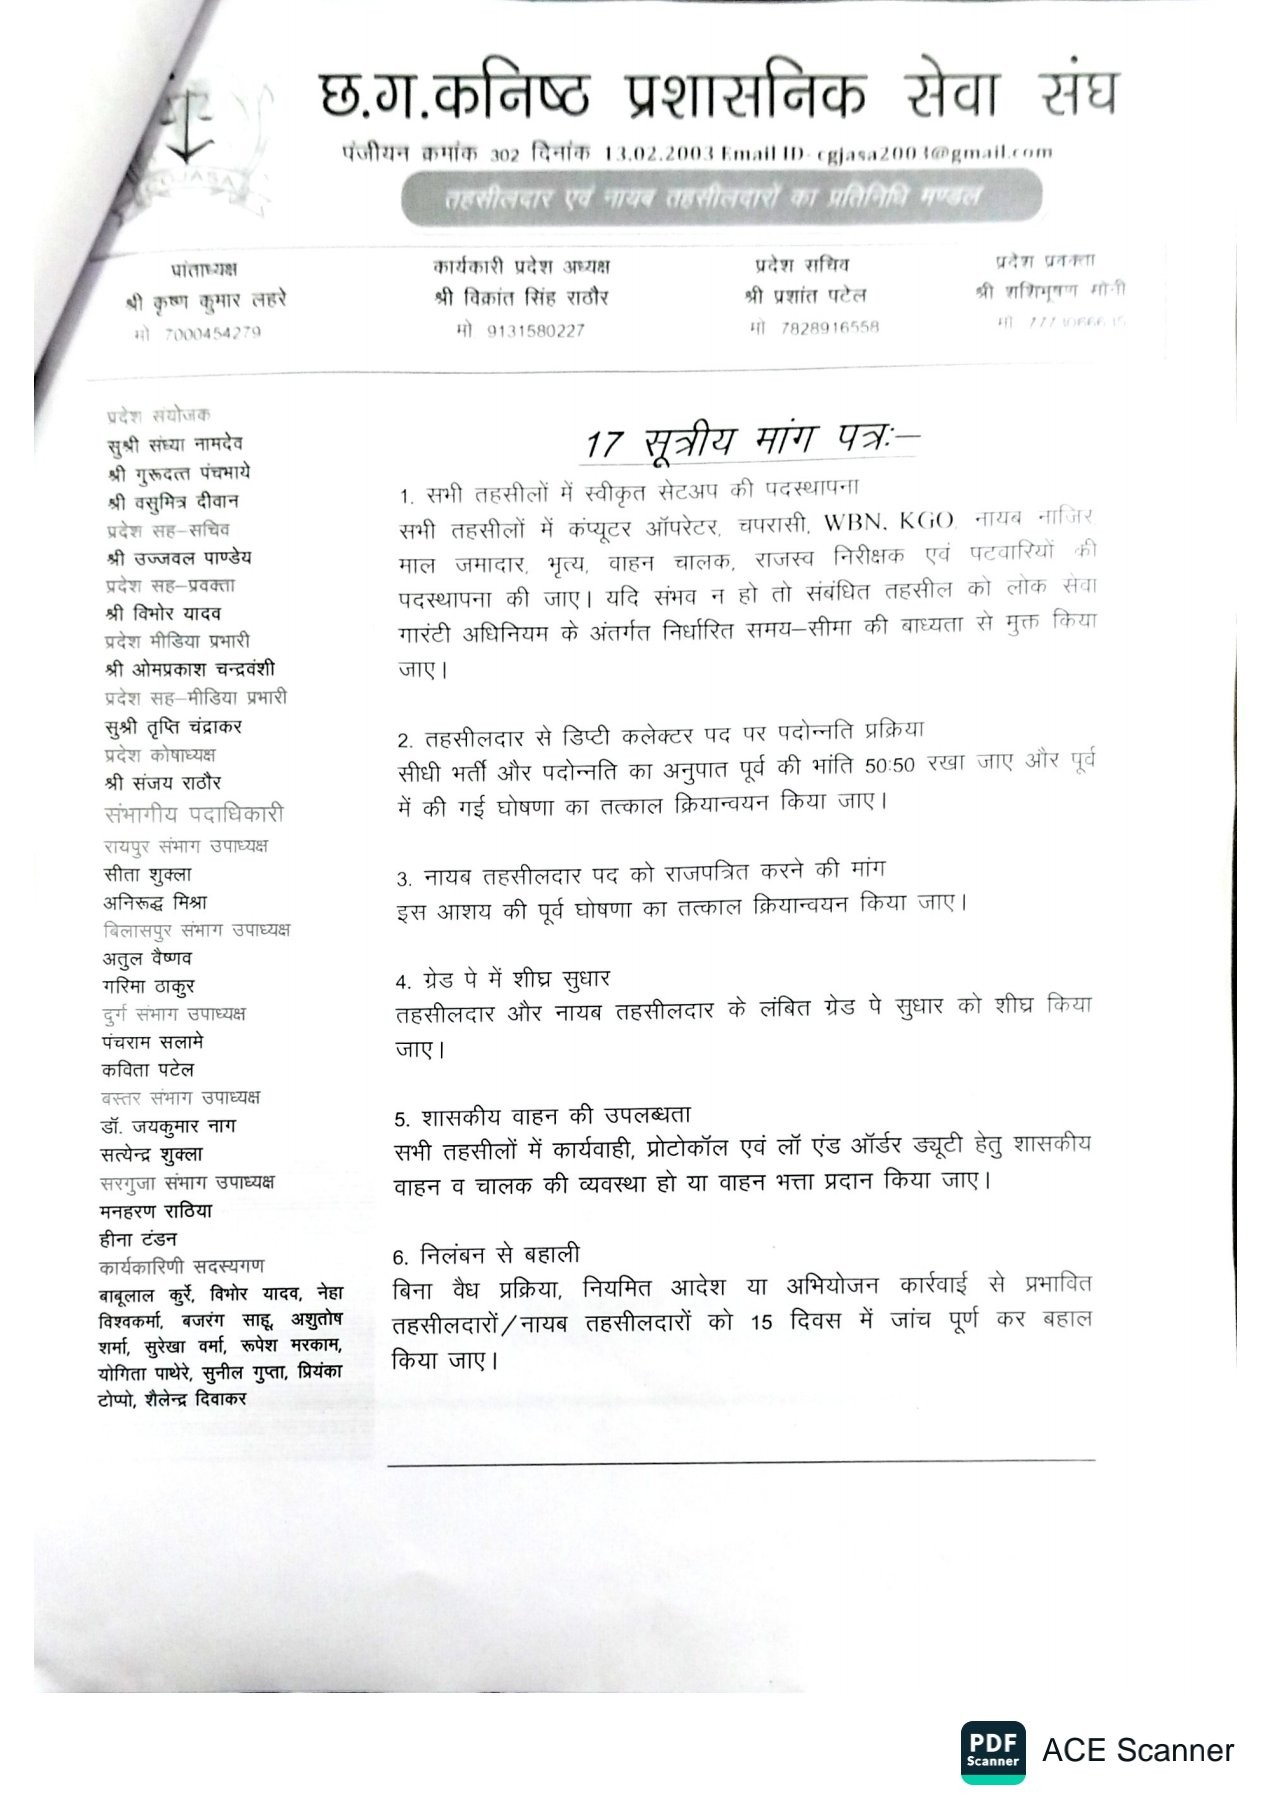 CGJASA
छ.ग.कनिष्ठ प्रशासनिक सेवा संघ
पंजीयन क्रमांक 302 दिनांक 13.02.2003 Email ID- cgjasa2003@gmail.com
तहसीलदार एवं नायब तहसीलदारों का प्रतिनिधि मण्डल
प्रांताध्यक्ष
श्री कृष्ण कुमार लहरे
मो 7000454279
कार्यकारी प्रदेश अध्यक्ष
श्री विक्रांत सिंह राठौर
मो 9131580227
प्रदेश सचिव
श्री प्रशांत पटेल
मो 7828916558
प्रदेश प्रवक्ता
श्री शशिभूषण सोनी
मो
प्रदेश संयोजक
सुश्री संध्या नामदेव
श्री गुरूदत्त पंचभाये
श्री वसुमित्र दीवान
प्रदेश सह–सचिव
श्री उज्जवल पाण्डेय
प्रदेश सह–प्रवक्ता
श्री विभोर यादव
प्रदेश मीडिया प्रभारी
श्री ओमप्रकाश चन्द्रवंशी
प्रदेश सह–मीडिया प्रभारी
सुश्री तृप्ति चंद्राकर
प्रदेश कोषाध्यक्ष
श्री संजय राठौर
संभागीय पदाधिकारी
रायपुर संभाग उपाध्यक्ष
सीता शुक्ला
अनिरूद्ध मिश्रा
बिलासपुर संभाग उपाध्यक्ष
अतुल वैष्णव
गरिमा ठाकुर
दुर्ग संभाग उपाध्यक्ष
पंचराम सलामे
कविता पटेल
बस्तर संभाग उपाध्यक्ष
डॉ. जयकुमार नाग
सत्येन्द्र शुक्ला
सरगुजा संभाग उपाध्यक्ष
मनहरण राठिया
हीना टंडन
कार्यकारिणी सदस्यगण
बाबूलाल कुर्रे, विभोर यादव, नेहा
विश्वकर्मा, बजरंग साहू, अशुतोष
शर्मा, सुरेखा वर्मा, रूपेश मरकाम,
योगिता पाथेरे, सुनील गुप्ता, प्रियंका
टोप्पो, शैलेन्द्र दिवाकर
17 सूत्रीय मांग पत्रः–
1. सभी तहसीलों में स्वीकृत सेटअप की पदस्थापना
सभी तहसीलों में कंप्यूटर ऑपरेटर, चपरासी, WBN, KGO, नायब नाजिर,
माल जमादार, भृत्य, वाहन चालक, राजस्व निरीक्षक एवं पटवारियों की
पदस्थापना की जाए। यदि संभव न हो तो संबंधित तहसील को लोक सेवा
गारंटी अधिनियम के अंतर्गत निर्धारित समय–सीमा की बाध्यता से मुक्त किया
जाए।
2. तहसीलदार से डिप्टी कलेक्टर पद पर पदोन्नति प्रक्रिया
सीधी भर्ती और पदोन्नति का अनुपात पूर्व की भांति 50:50 रखा जाए और पूर्व
में की गई घोषणा का तत्काल क्रियान्वयन किया जाए।
3. नायब तहसीलदार पद को राजपत्रित करने की मांग
इस आशय की पूर्व घोषणा का तत्काल क्रियान्वयन किया जाए।
4. ग्रेड पे में शीघ्र सुधार
तहसीलदार और नायब तहसीलदार के लंबित ग्रेड पे सुधार को शीघ्र किया
जाए।
5. शासकीय वाहन की उपलब्धता
सभी तहसीलों में कार्यवाही, प्रोटोकॉल एवं लॉ एंड ऑर्डर ड्यूटी हेतु शासकीय
वाहन व चालक की व्यवस्था हो या वाहन भत्ता प्रदान किया जाए।
6. निलंबन से बहाली
बिना वैध प्रक्रिया, नियमित आदेश या अभियोजन कार्रवाई से प्रभावित
तहसीलदारों/नायब तहसीलदारों को 15 दिवस में जांच पूर्ण कर बहाल
किया जाए।
PDF
Scanner
ACE Scanner